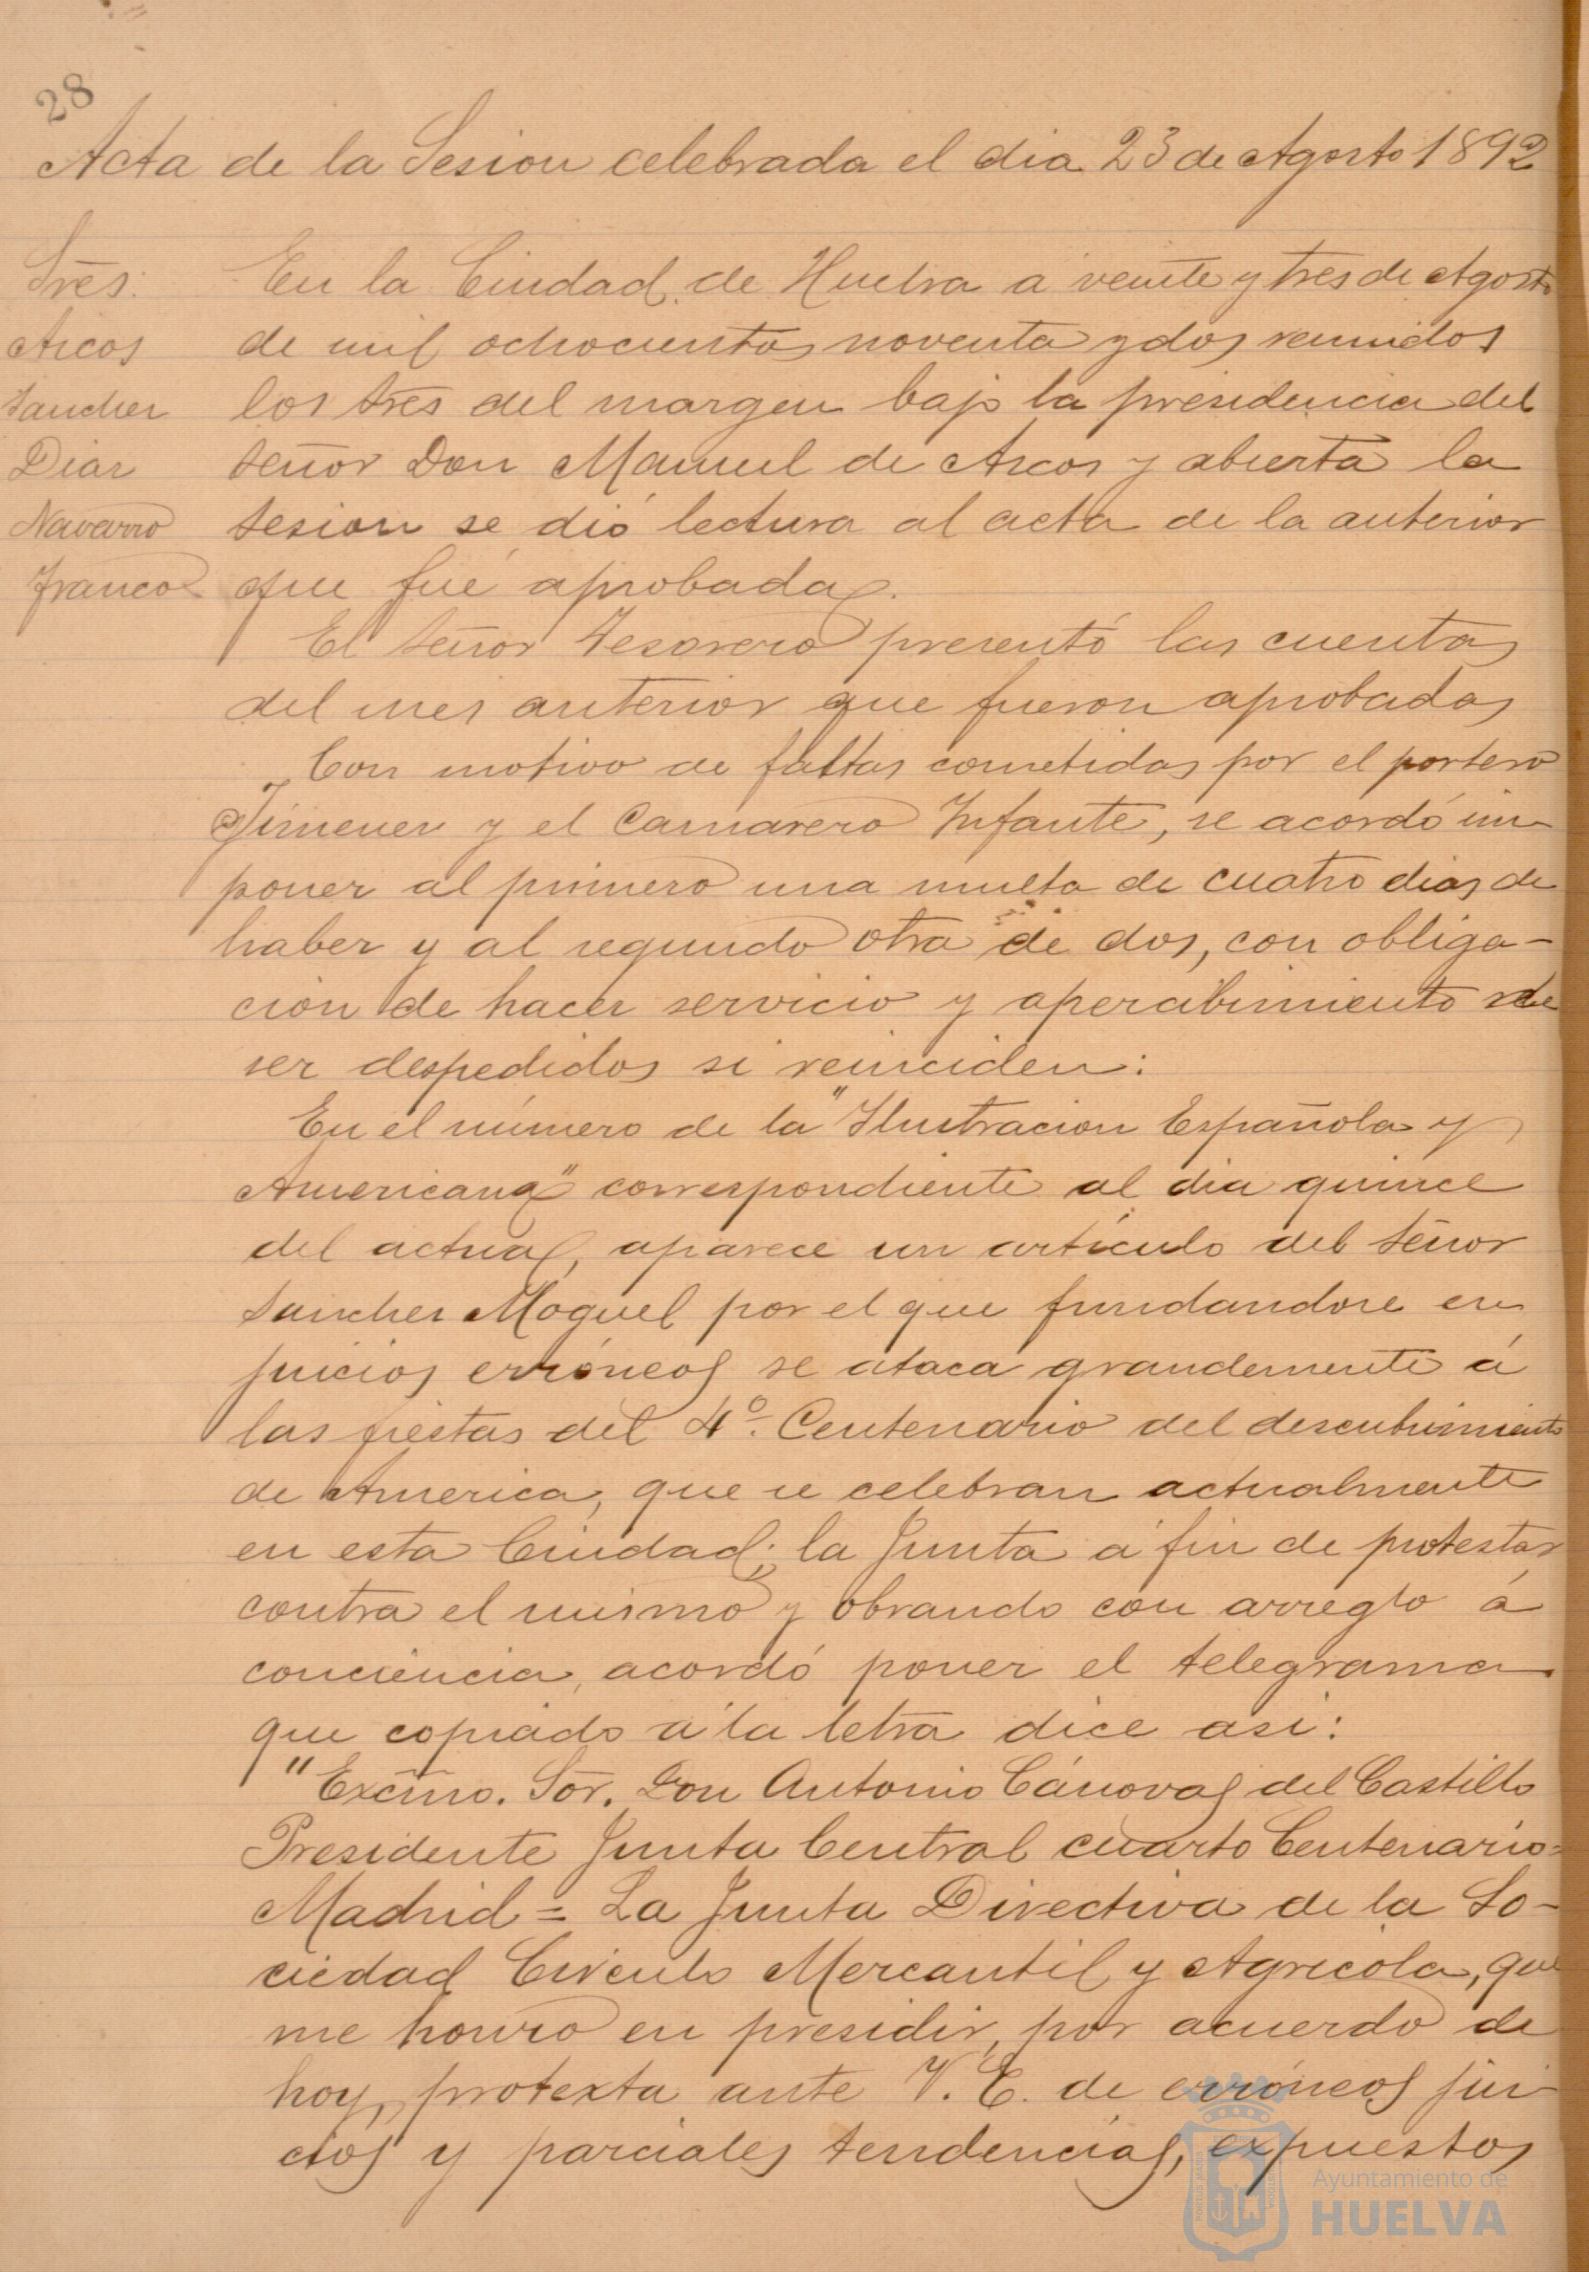 28
Acta de la Sesion celebrada el dia 23 de Agosto 1892
Srēs.
Arcos
Sanchez
Diaz
Navarro
Franco
En la Ciudad de Huelva a veinte y tres de Agosto
de mil ochocientos noventa y dos reunidos
los Srēs del margen bajo la presidencia del
señor Don Manuel de Arcos y abierta la
sesion se dió lectura al acta de la anterior
que fué aprobada.
El señor Tesorero presentó las cuentas
del mes anterior que fueron aprobadas
Con motivo de faltas cometidas por el portero
Jimenez y el Camarero Infante, se acordó im-
poner al primero una multa de cuatro dias de
haber y al segundo otra de dos, con obliga-
ción de hacer servicio y apercibimiento de
ser despedidos si reinciden:
En el número de la "Ilustracion Española y
Americana" correspondiente al dia quince
del actual, aparece un artículo del señor
Sanchez Moguel por el que fundandose en
juicios erróneos se ataca grandemente á
las fiestas del 4º Centenario del descubrimiento
de America, que se celebran actualmente
en esta Ciudad; la Junta á fin de protestar
contra el mismo y obrando con arreglo á
conciencia, acordó poner el telegrama
que copiado á la letra dice asi:
"Excm̃o. Sōr. Don Antonio Cánovas del Castillo
Presidente Junta Central cuarto Centenario=
Madrid = La Junta Directiva de la So-
ciedad Circulo Mercantil y Agricola, que
me honro en presidir, por acuerdo de
hoy, protexta ante V. E. de erróneos jui-
cios y parciales tendencias, expuestos
Ayuntamiento de
HUELVA